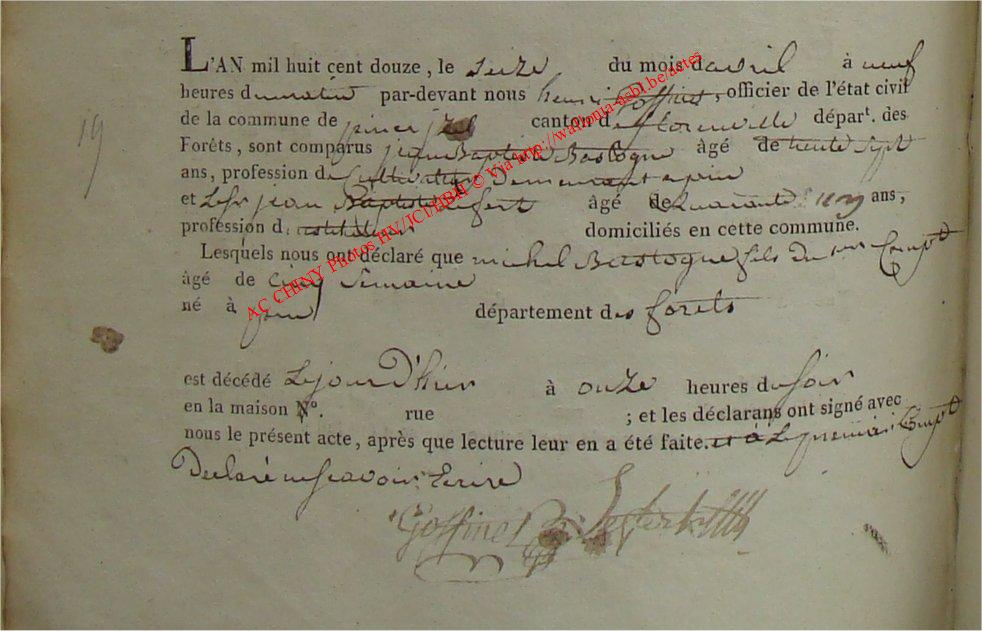 19
L'AN mil huit cent douze, le seize du mois d'avril à neuf
heures du matin par-devant nous henri Goffinet, officier de l'état civil
de la commune de canton de florenville dépar<sup>t</sup>. des
Forêts, sont comparus jean Baptiste Bastogne âgé de trente sept
ans, profession de Cultivateur Demeurant a
et jean Baptiste âgé de quarante ans,
profession d. domiciliés en cette commune.
Lesquels nous ont déclaré que michel Bastogne fils du Compt
âgé de Cinq Semaine
né à département des forets
est décédé Lejour D'hier à onze heures du soir
en la maison N°. rue ; et les déclarans ont signé avec
nous le présent acte, après que lecture leur en a été faite. et a Le premier Compt
Declaré ne scavoir Ecrire
Goffinet
AC CHINY Photos HV/JCl/IBH © Via http://wallonia-asbl.be/actes